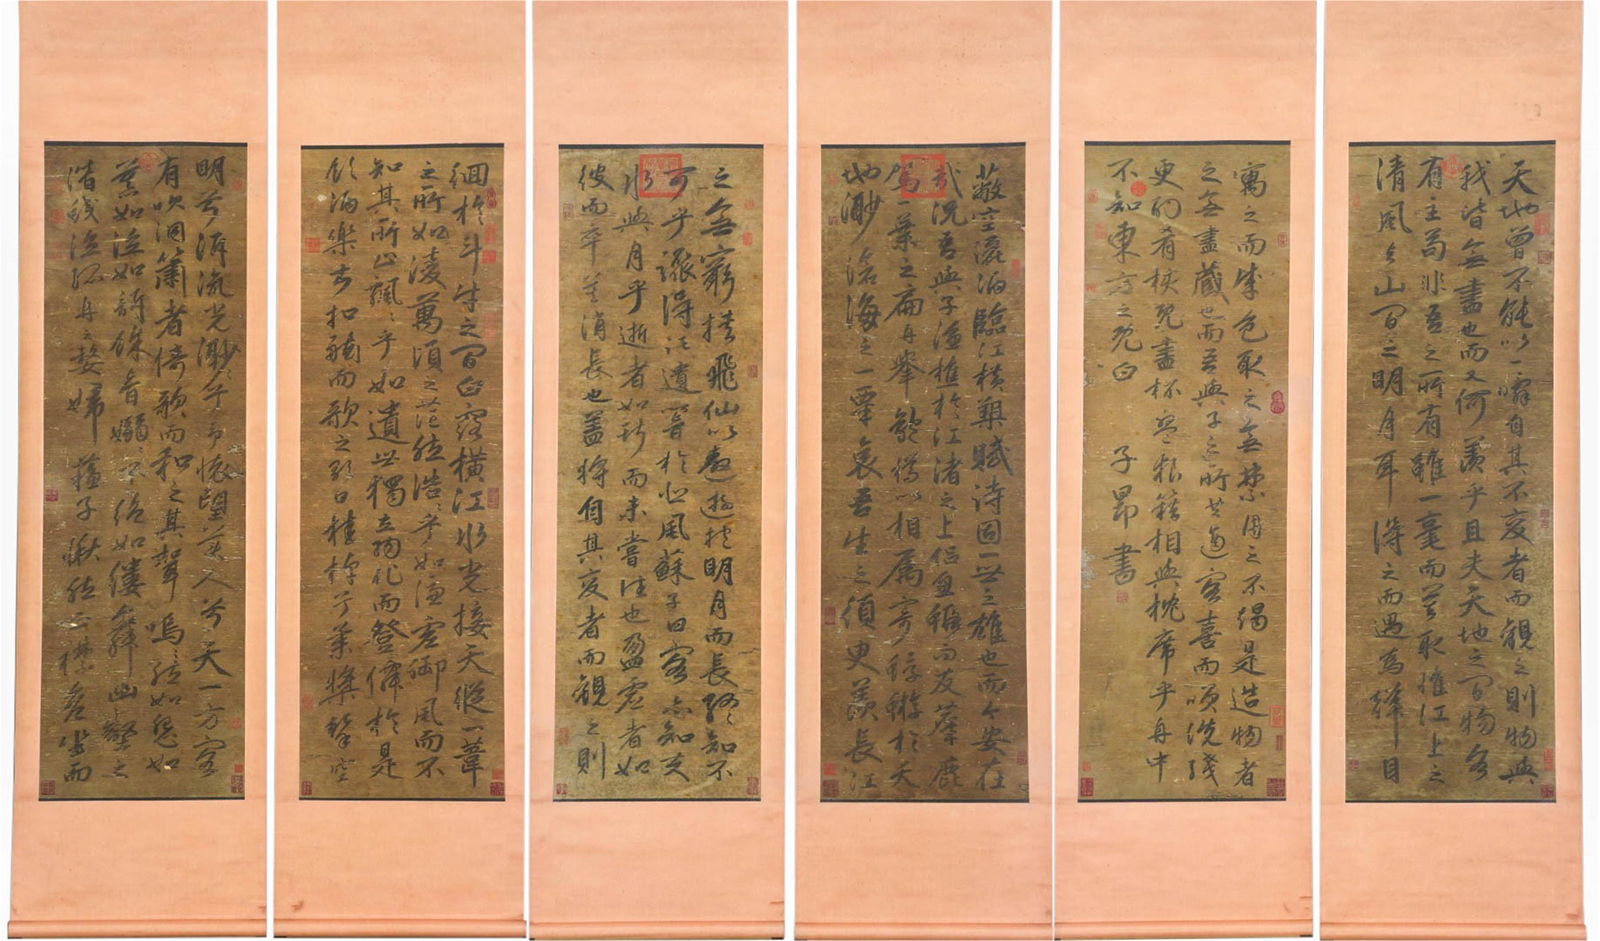 天地曾不能以一瞬自其不變者而觀之則物與
我皆無盡也而又何羨乎且夫天地之間物各
有主苟非吾之所有雖一毫而莫取惟江上之
清風與山間之明月耳得之而遇為聲目
寓之而成色取之無禁用之不竭是造物者
之無盡藏也而吾與子之所共適客喜而洗
更酌肴核既盡杯盤狼籍相與枕席乎舟中
不知東方之既白 子昂書
蔽空灑酒臨江橫槊賦詩固一世之雄也而今安在
哉況吾與子漁樵於江渚之上侶魚蝦而友麋鹿
駕一葉之扁舟舉匏樽以相屬寄蜉蝣於天
地渺滄海之一粟哀吾生之須臾羨長江
之無窮挾飛仙以遨遊抱明月而長終知不
可乎驟得託遺響於悲風蘇子曰客亦知夫
水與月乎逝者如斯而未嘗往也盈虛者如
彼而卒莫消長也蓋將自其變者而觀之則
徊於斗牛之間白露橫江水光接天縱一葦
之所如凌萬頃之茫然浩浩乎如馮虛御風而不
知其所止飄飄乎如遺世獨立羽化而登僊於是
飲酒樂甚扣舷而歌之歌曰桂棹兮蘭槳擊空
明兮泝流光渺渺兮予懷望美人兮天一方客
有吹洞簫者倚歌而和之其聲嗚嗚然如怨如
慕如泣如訴餘音嫋嫋不絕如縷舞幽壑之
潛蛟泣孤舟之嫠婦 蘇子愀然正襟危坐而